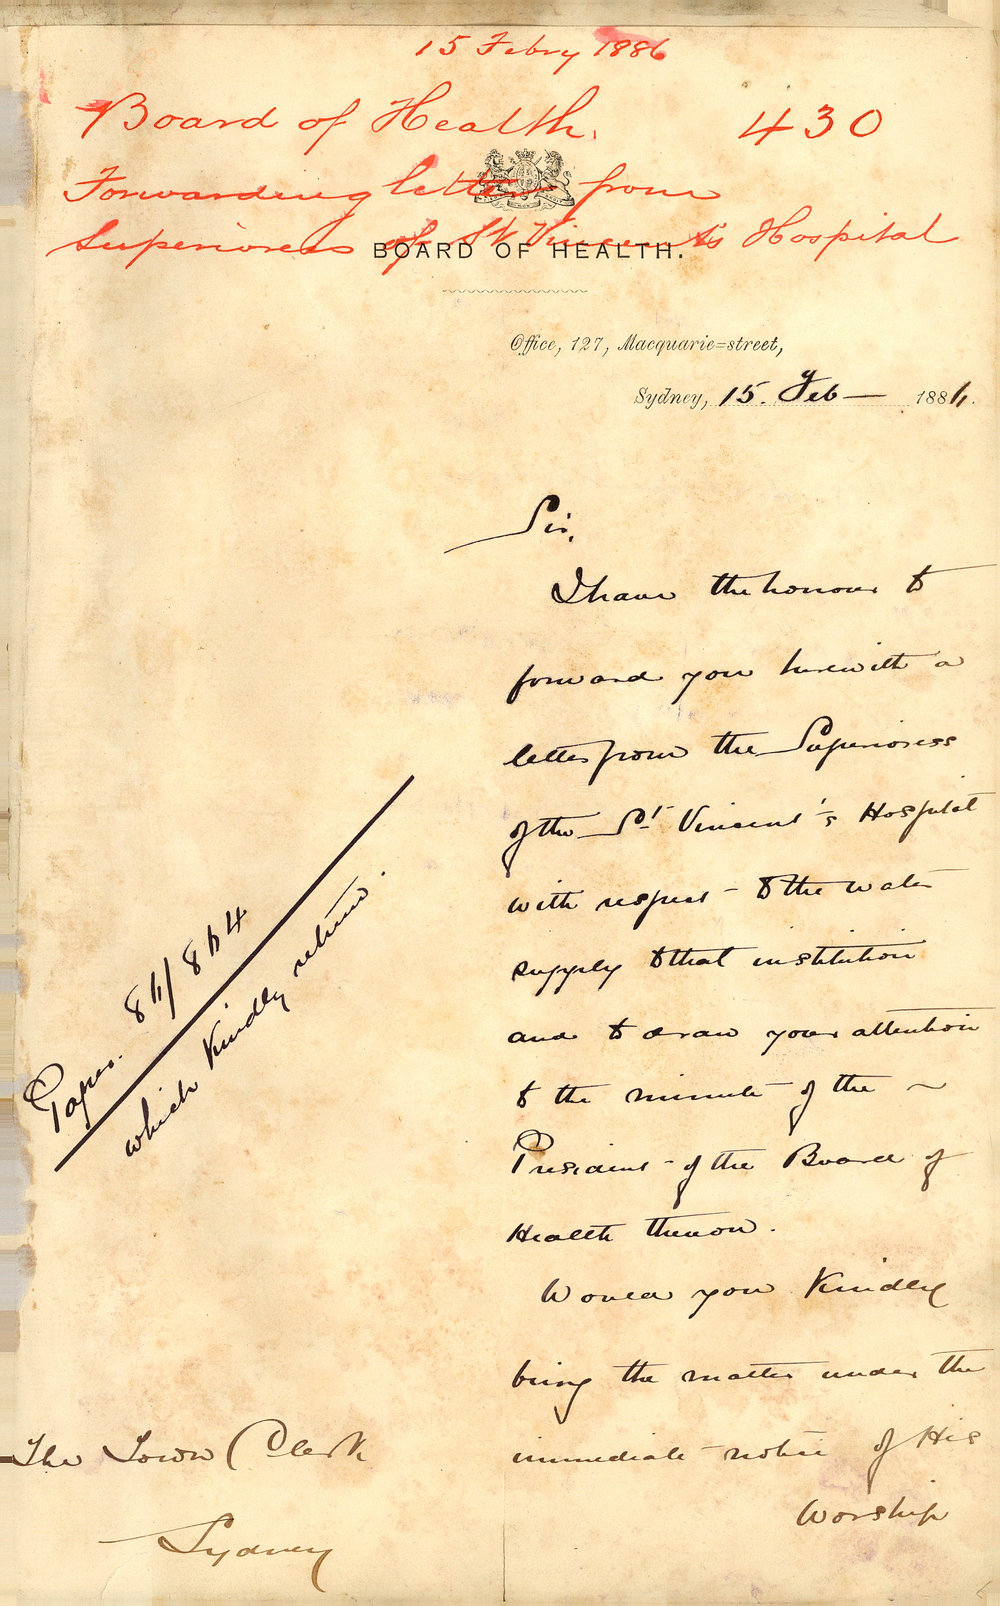 15 Febry 1886
Board of Health. 430
Forwarding letter from
Superioress of St Vincent's Hospital
BOARD OF HEALTH.
Office, 127, Macquarie=street,
Sydney, 15. Feby 1886.
Sir,
I have the honour to
forward you herewith a
letter from the Superioress
of the St Vincent's Hospital
with respect to the water
supply to that institution
and to draw your attention
to the minute of the
President of the Board of
Health thereon.
Would you Kindly
bring the matter under the
immediate notice of His
Worship
Paper. 86/864
which Kindly return.
The Town Clerk
Sydney